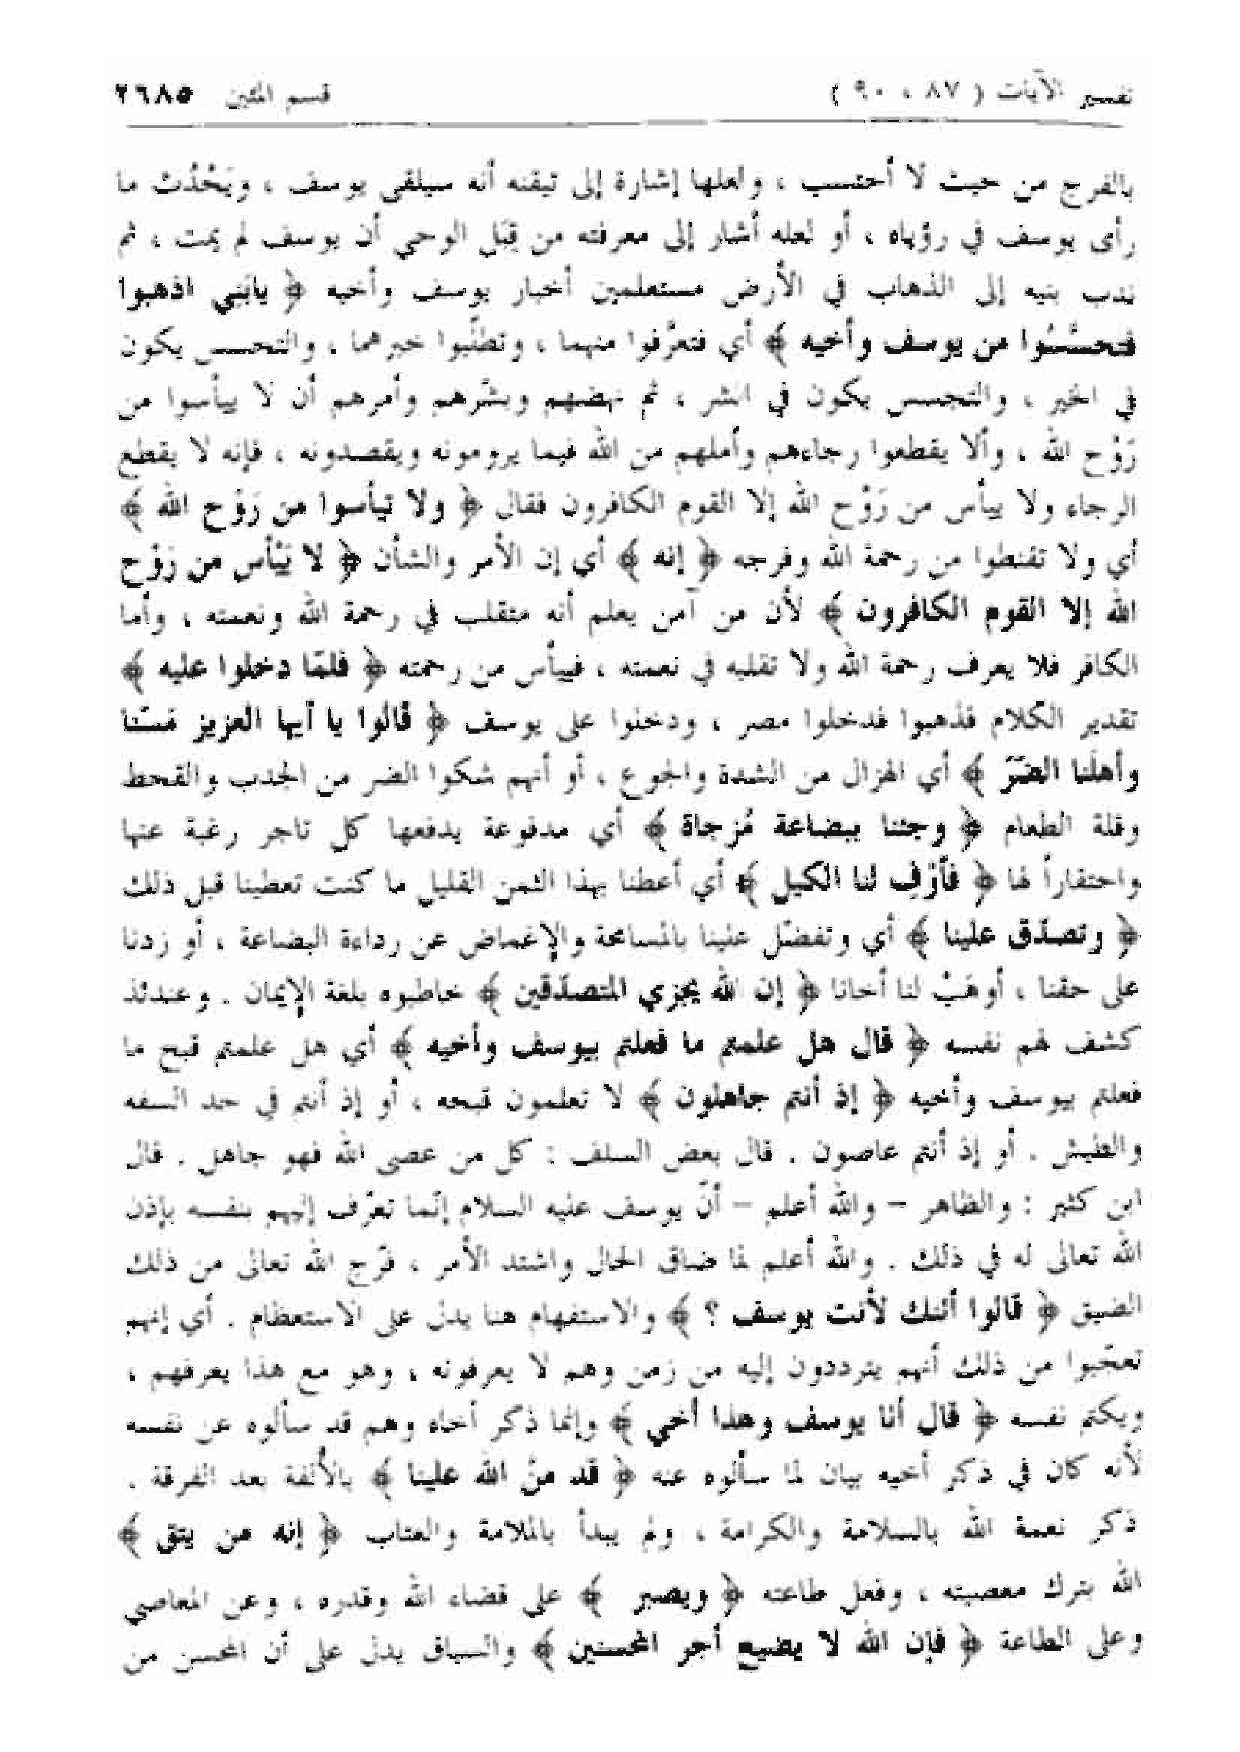 تفسير الآيات ( ٨٧ ، ٩٠ ) قسم المئين ٢٦٨٥
بالفرج من حيث لا أحتسب ، ولعلها إشارة إلى تيقنه أنه سيلقى يوسف ، ويَحْدُث ما
رأى يوسف في رؤياه ، أو لعله أشار إلى معرفته من قِبَل الوحي أن يوسف لم يمت ، ثم
ندب بنيه إلى الذهاب في الأرض مستعلمين أخبار يوسف وأخيه ﴿ يابَني اذهبوا
فتحسَّسُوا من يوسف وأخيه ﴾ أي فتعرَّفوا منهما ، وتطلّبوا خبرهما . والتحسس يكون
في الخير ، والتجسس يكون في الشر ، ثم نهضهم وبشّرهم وأمرهم أن لا ييأسوا من
رَوْح الله ، وألا يقطعوا رجاءهم وأملهم من الله فيما يرومونه ويقصدونه ، فإنه لا يقطع
الرجاء ولا ييأس من رَوْح الله إلا القوم الكافرون فقال ﴿ ولا تيأسوا من رَوْح الله ﴾
أي ولا تقنطوا من رحمة الله وفرجه ﴿ إنه ﴾ أي إن الأمر والشأن ﴿ لا يَيْأس من رَوْح
الله إلا القوم الكافرون ﴾ لأن من آمن يعلم أنه متقلب في رحمة الله ونعمته ، وأما
الكافر فلا يعرف رحمة الله ولا تقلبه في نعمته ، فييأس من رحمته ﴿ فلمّا دخلوا عليه ﴾
تقدير الكلام فذهبوا فدخلوا مصر ، ودخلوا على يوسف ﴿ قالوا يا أيها العزيز مَسّنا
وأهلَنا الضرّ ﴾ أي الهزال من الشدة والجوع ، أو أنهم شكوا الضر من الجذب والقحط
وقلة الطعام ﴿ وجئنا ببضاعة مُزجاة ﴾ أي مدفوعة يدفعها كل تاجر رغبة عنها
واحتقاراً لها ﴿ فأَوْفِ لنا الكيل ﴾ أي أعطنا بهذا الثمن القليل ما كنت تعطينا قبل ذلك
﴿ وتصدّق علينا ﴾ أي وتفضّل علينا بالمسامحة والإغماض عن رداءة البضاعة ، أو زدنا
على حقنا ، أو هَبْ لنا أخانا ﴿ إن الله يجزي المتصدّقين ﴾ خاطبوه بلغة الإيمان . وعندئذ
كشف لهم نفسه ﴿ قال هل علمتم ما فعلتم بيوسف وأخيه ﴾ أي هل علمتم قبح ما
فعلتم بيوسف وأخيه ﴿ إذ أنتم جاهلون ﴾ لا تعلمون قبحه ، أو إذ أنتم في حد السفه
والطيش . أو إذ أنتم عاصون . قال بعض السلف : كل من عصى الله فهو جاهل . قال
ابن كثير : والظاهر – والله أعلم – أنّ يوسف عليه السلام إنّما تعرّف إليهم بنفسه بإذن
الله تعالى له في ذلك . والله أعلم لما ضاق الحال واشتد الأمر ، فرّج الله تعالى من ذلك
الضيق ﴿ قالوا أئنك لأنت يوسف ؟ ﴾ والاستفهام هنا يدل على الاستعظام . أي إنهم
تعجّبوا من ذلك أنهم يترددون إليه من زمن وهم لا يعرفونه ، وهو مع هذا يعرفهم ،
ويكتم نفسه ﴿ قال أنا يوسف وهذا أخي ﴾ وإنما ذكر أخاه وهم قد سألوه عن نفسه
لأنه كان في ذكر أخيه بيان لما سألوه عنه ﴿ قد منّ الله علينا ﴾ بالألفة بعد الفرقة .
ذكر نعمة الله بالسلامة والكرامة ، ولم يبدأ بالملامة والعتاب ﴿ إنه من يتق ﴾
الله بترك معصيته ، وفعل طاعته ﴿ ويصبر ﴾ على قضاء الله وقدره ، وعن المعاصي
وعلى الطاعة ﴿ فإن الله لا يضيع أجر المحسنين ﴾ والسياق يدل على أن المحسن من